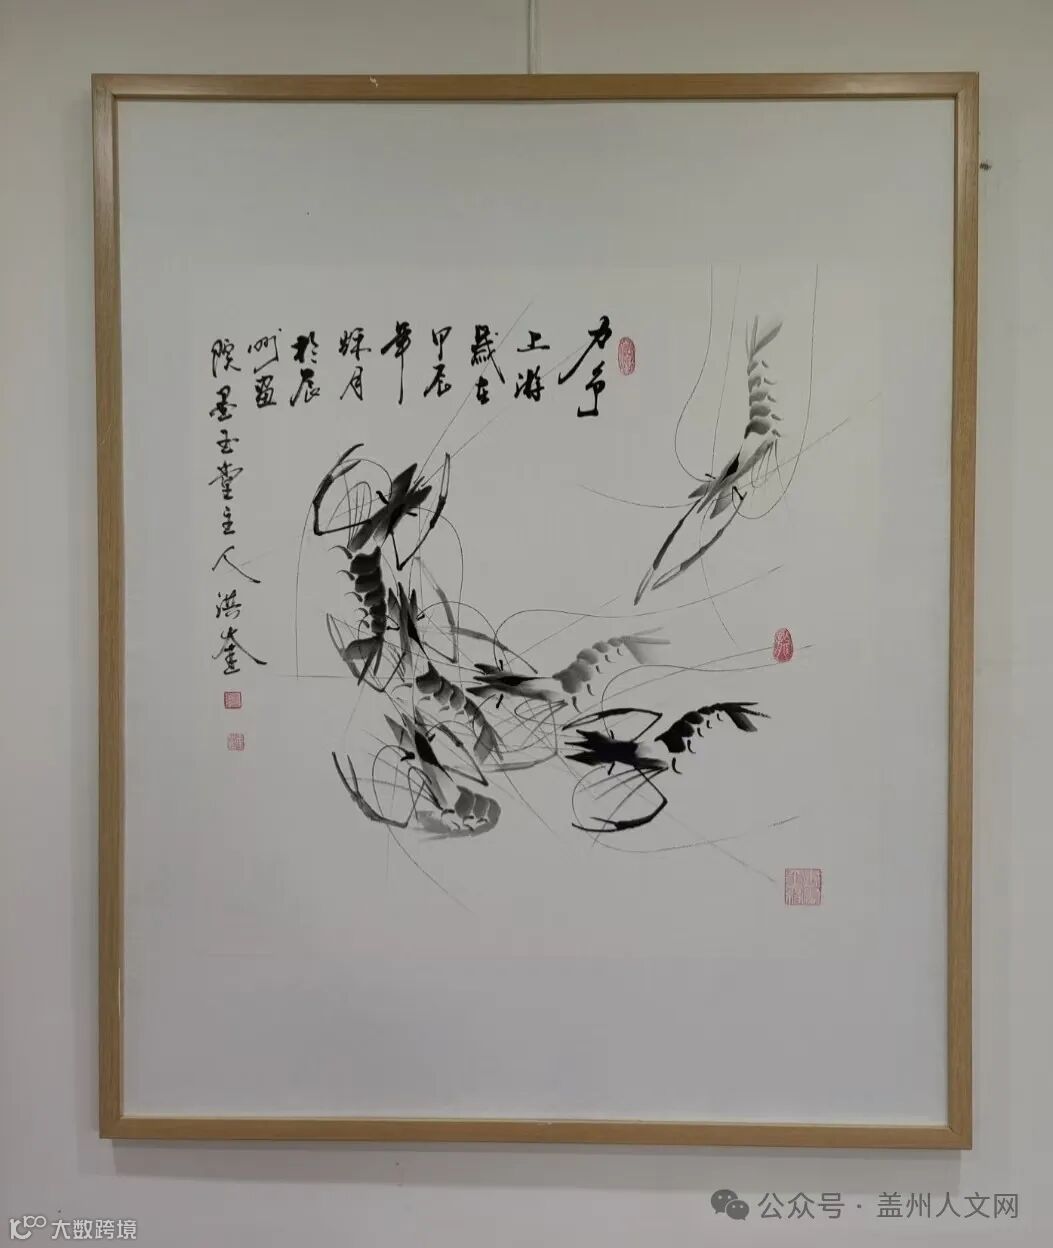 力争
上游
歲在
甲辰
年
月
於辰
州畫
院墨玉堂主人洪奎
公众号 · 盖州人文网
大数跨境